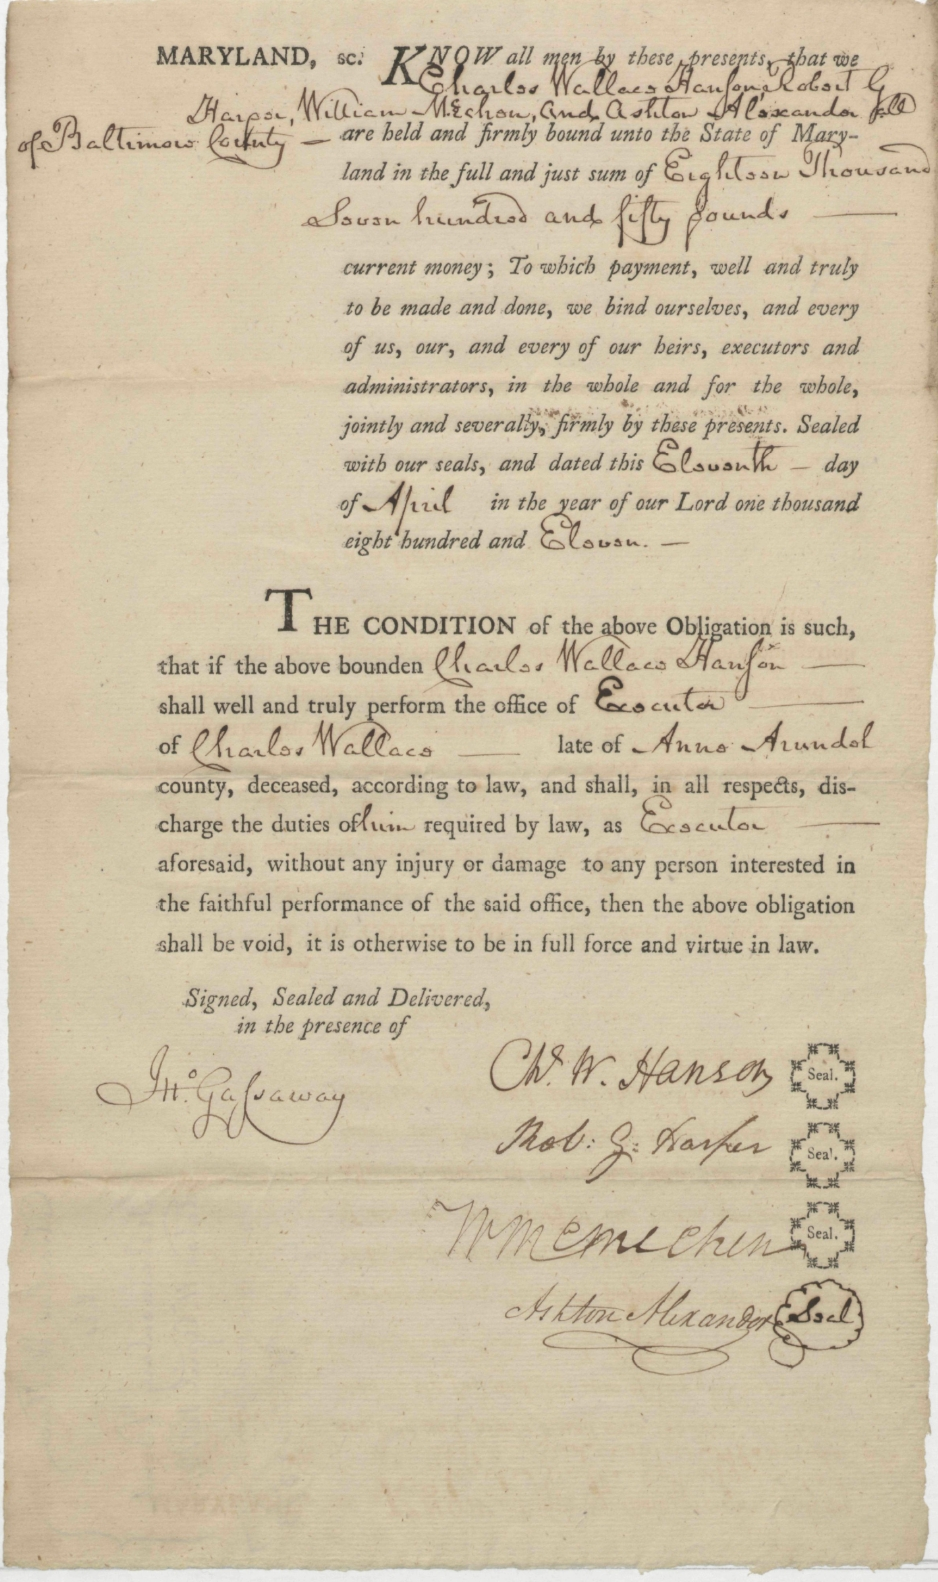 MARYLAND, sc. KNOW all men by these presents, that we
Charles Wallace Hanson, Robert G
Harper, William McMechen, and Ashton Alexander all
of Baltimore County — are held and firmly bound unto the State of Mary-
land in the full and just sum of Eighteen Thousand
Seven hundred and fifty pounds —
current money; To which payment, well and truly
to be made and done, we bind ourselves, and every
of us, our, and every of our heirs, executors and
administrators, in the whole and for the whole,
jointly and severally, firmly by these presents. Sealed
with our seals, and dated this Eleventh — day
of April in the year of our Lord one thousand
eight hundred and Eleven. —
THE CONDITION of the above Obligation is such,
that if the above bounden Charles Wallace Hanson —
shall well and truly perform the office of Executor —
of Charles Wallace — late of Anne Arundel
county, deceased, according to law, and shall, in all respects, dis-
charge the duties of him required by law, as Executor —
aforesaid, without any injury or damage to any person interested in
the faithful performance of the said office, then the above obligation
shall be void, it is otherwise to be in full force and virtue in law.
Signed, Sealed and Delivered,
in the presence of
Jno. Gassaway
Chs. W. Hanson Seal.
Rob: G: Harper Seal.
W McMechen Seal.
Ashton Alexander Seal